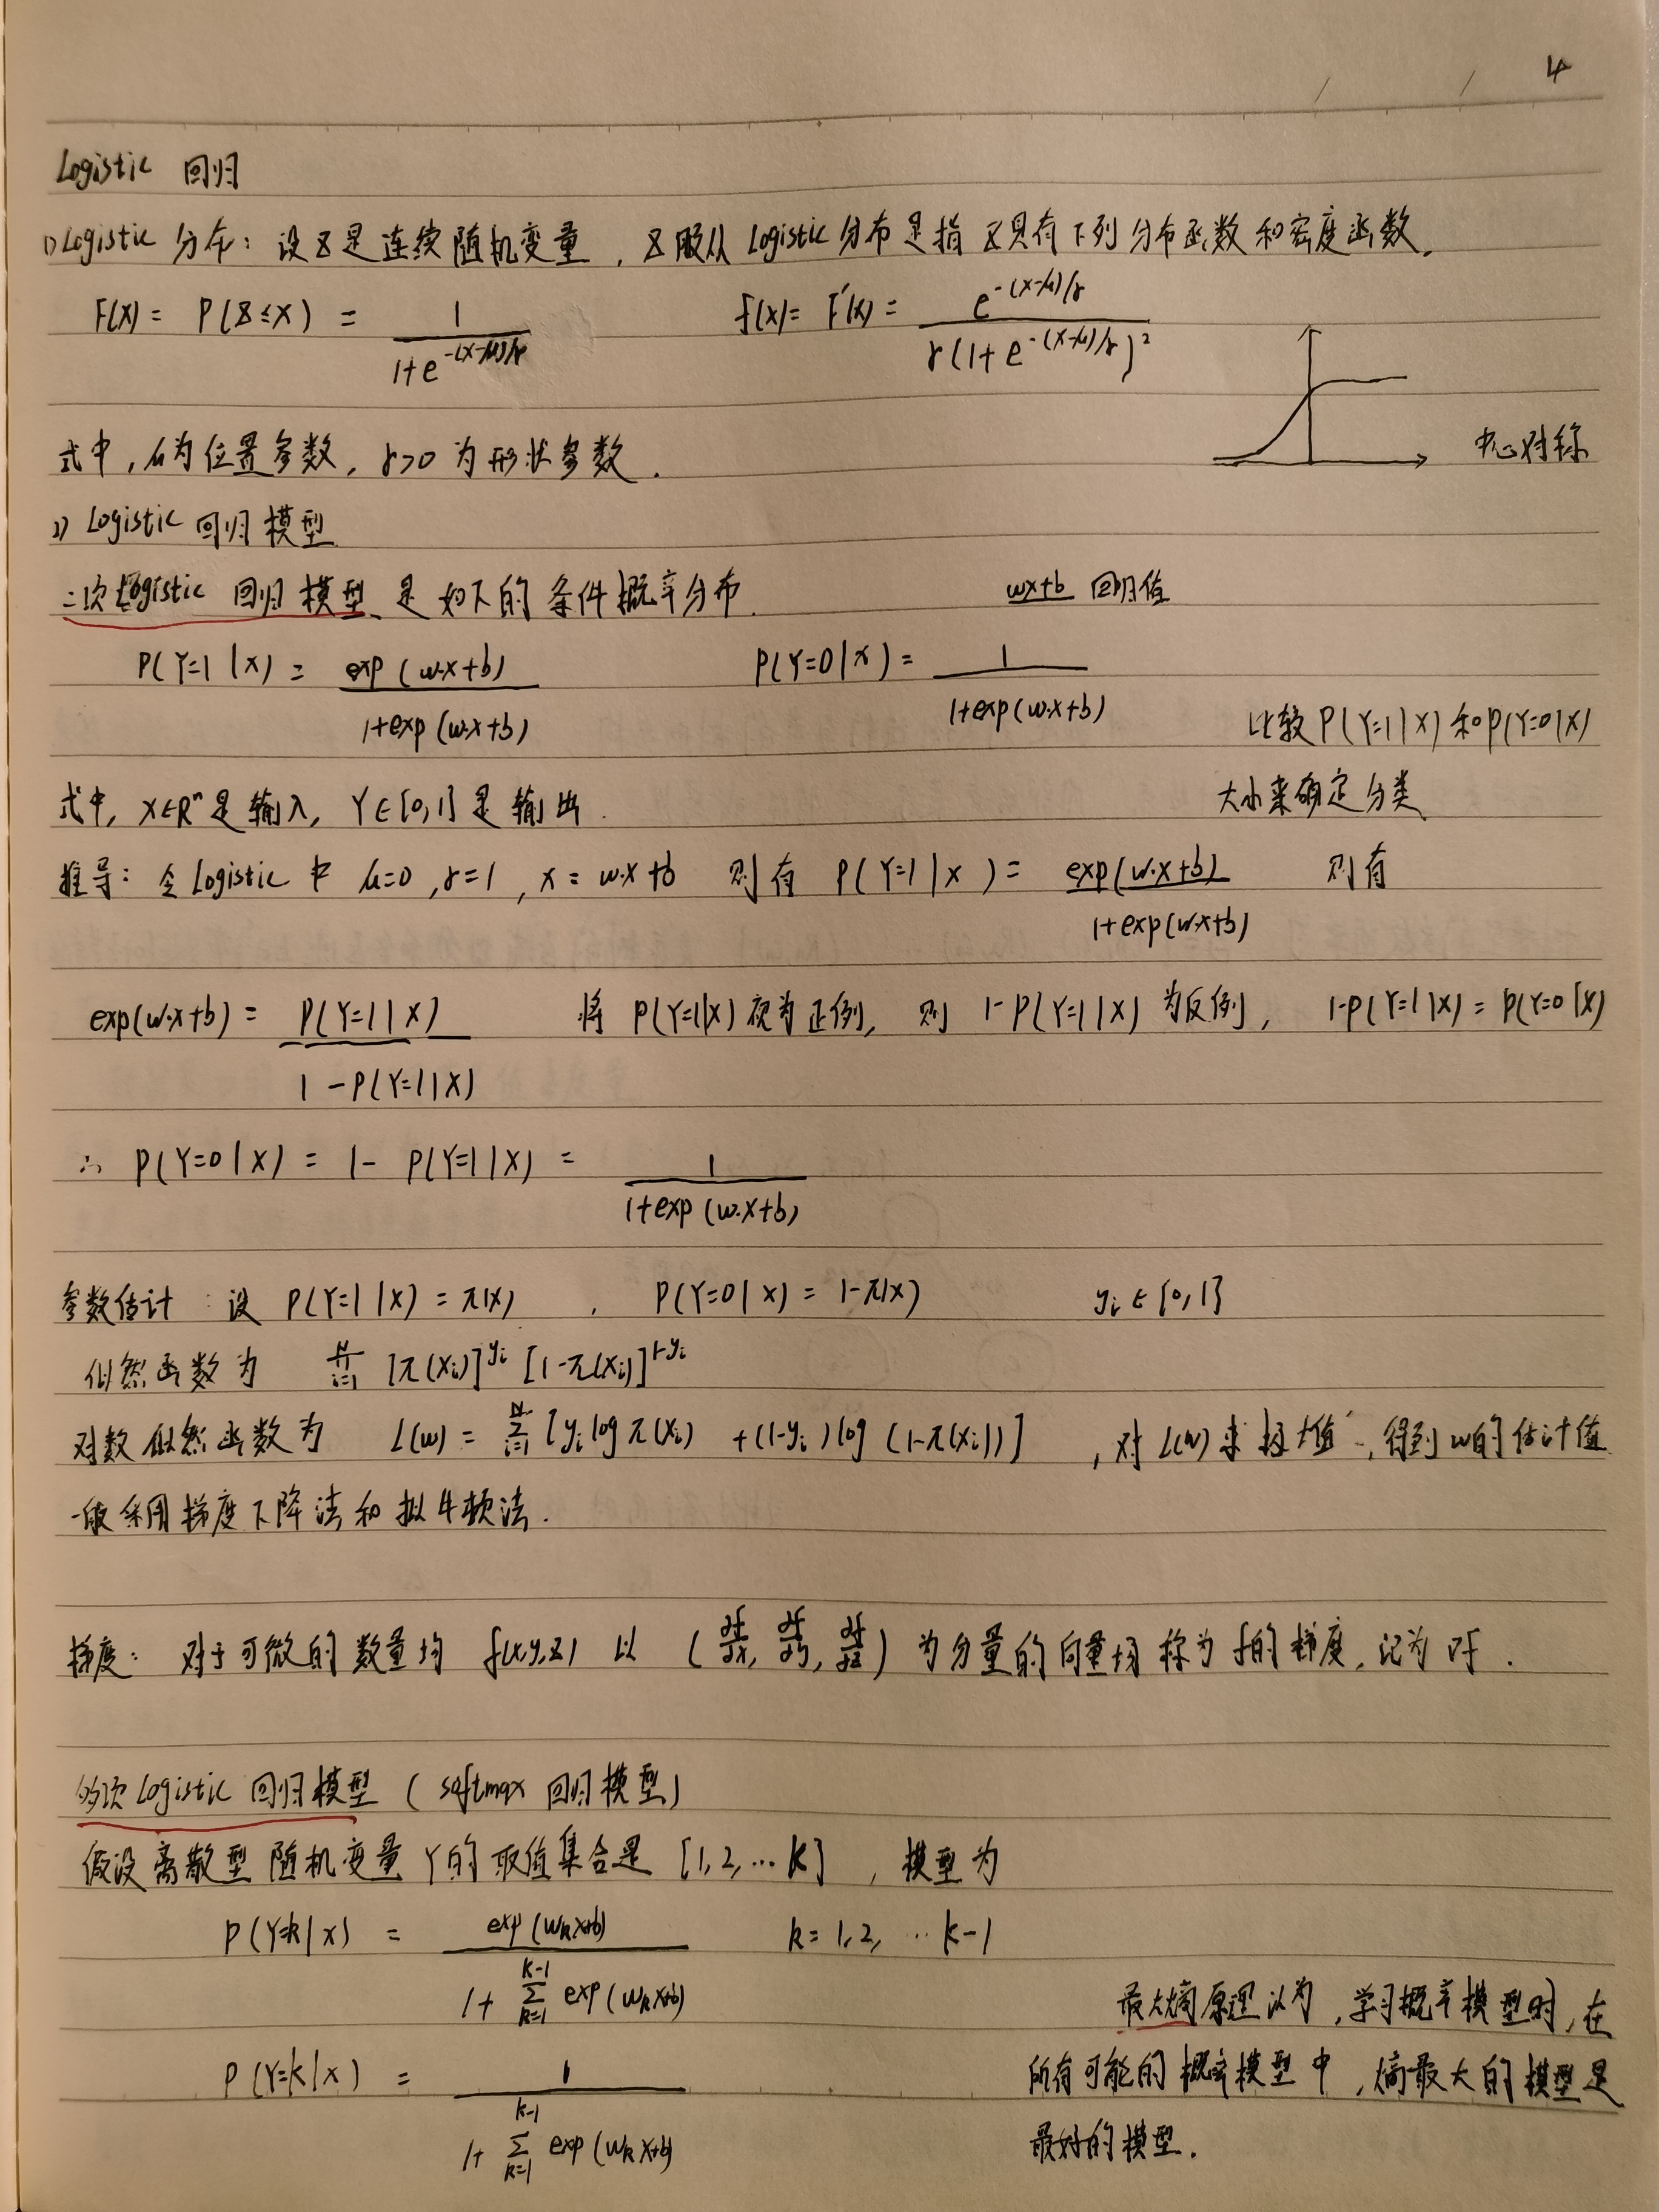 4
Logistic 回归
1) Logistic 分布：设Z是连续随机变量，Z服从 Logistic 分布是指 Z具有下列分布函数和密度函数.
F(x) = P(Z≤x) = 1 / (1+e^{-(x-μ)/γ})    f(x) = F'(x) = e^{-(x-μ)/γ} / (γ(1+e^{-(x-μ)/γ})²)
式中，μ为位置参数，γ>0 为形状参数.
中心对称
2) Logistic 回归模型
二次Logistic 回归模型是如下的条件概率分布.    wx+b 回归值
P(Y=1|x) = exp(w·x+b) / (1+exp(w·x+b))    P(Y=0|x) = 1 / (1+exp(w·x+b))
比较P(Y=1|X)和P(Y=0|X)
大小来确定分类
式中，X∈Rⁿ是输入，Y∈{0,1}是输出.
推导：令Logistic中 μ=0, γ=1, x = w·x+b 则有 P(Y=1|x) = exp(w·x+b) / (1+exp(w·x+b)) 则有
exp(w·x+b) = P(Y=1|X) / (1-P(Y=1|X))    将 P(Y=1|X) 视为正例，则 1-P(Y=1|X) 为反例， 1-P(Y=1|X) = P(Y=0|X)
∴ P(Y=0|X) = 1- P(Y=1|X) = 1 / (1+exp(w·x+b))
参数估计：设 P(Y=1|X) = π(x) , P(Y=0|X) = 1-π(x)    yᵢ∈{0,1}
似然函数为 ∏_{i=1}^{N} [π(xᵢ)]^{yᵢ} [1-π(xᵢ)]^{1-yᵢ}
对数似然函数为 L(w) = ∑_{i=1}^{N} [yᵢ log π(xᵢ) + (1-yᵢ) log (1-π(xᵢ))] ，对 L(w) 求极大值，得到w的估计值
一般采用梯度下降法和拟牛顿法.
梯度：对于可微的数量场 f(x,y,z) 以 (∂f/∂x, ∂f/∂y, ∂f/∂z) 为分量的向量场称为f的梯度，记为 ∇f.
多次Logistic 回归模型 (softmax 回归模型)
假设离散型随机变量Y的取值集合是 {1,2,…K} ，模型为
P(Y=k|x) = exp(wₖx+b) / (1+ ∑_{k=1}^{K-1} exp(wₖx+b))    k=1,2, … K-1
P(Y=K|x) = 1 / (1+ ∑_{k=1}^{K-1} exp(wₖx+b))
最大熵原理认为，学习概率模型时，在
所有可能的概率模型中，熵最大的模型是
最好的模型.